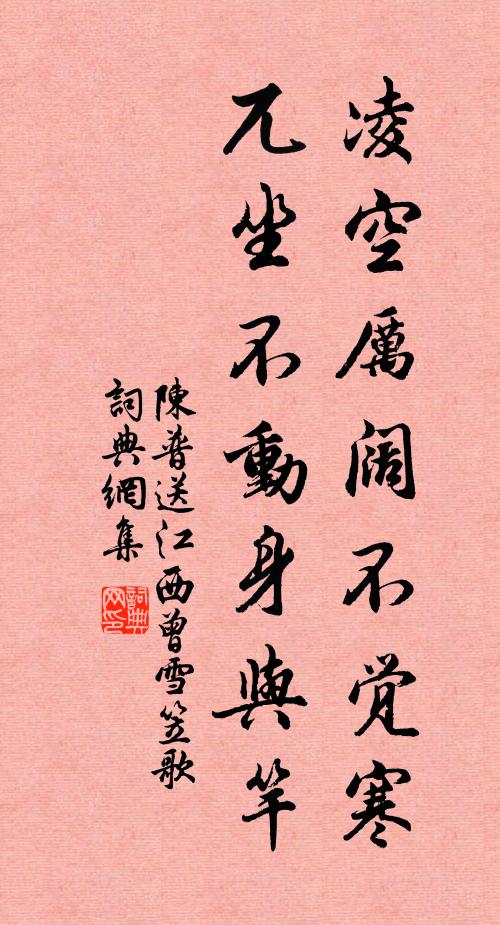 凌空厲阔不觉寒
兀坐不動身與竿
陳普送江西曾雪笠歌
詞典網集
詞典网印